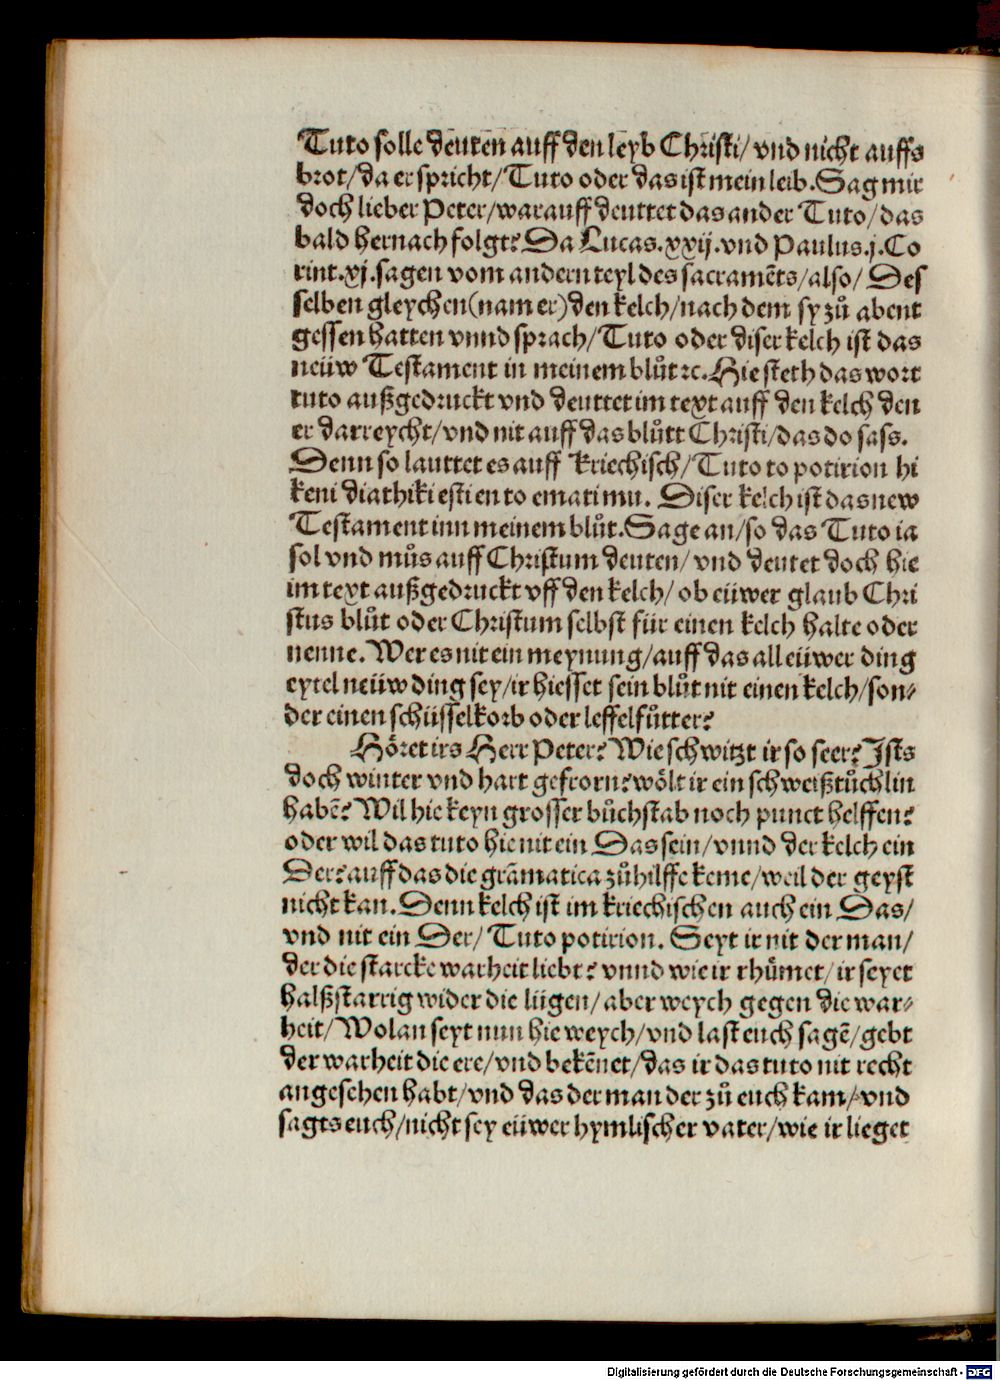 Tuto solle deuten auff den leyb Christi/ vnd nicht auffs
brot/ da er spricht/ Tuto oder das ist mein leib. Sag mir
doch lieber Peter/ warauff deuttet das ander Tuto/ das
bald hernach folgt? Da Lucas. xxij. vnd Paulus. j. Co
rint. xj. sagen vom andern teyl des sacramēts/ also/ Des
selben gleychen (nam er) den kelch/ nach dem sy zů abent
gessen hatten vnnd sprach/ Tuto oder diser kelch ist das
neüw Testament in meinem blůt ꝛc. Hie steth das wort
tuto außgedruckt vnd deuttet im text auff den kelch den
er darreycht/ vnd nit auff das blůtt Christi/ das do sass.
Denn so lauttet es auff kriechisch/ Tuto to potirion hi
keni diathiki esti en to emati mu. Diser kelch ist das new
Testament inn meinem blůt. Sage an/ so das Tuto ia
sol vnd můs auff Christum deuten/ vnd deutet doch hie
im text außgedruckt vff den kelch/ ob eüwer glaub Chri
stus blůt oder Christum selbst für einen kelch halte oder
nenne. Wer es nit ein meynung/ auff das all eüwer ding
eytel neüw ding sey/ ir hiesset sein blůt nit einen kelch/ son⸗
der einen schüsselkorb oder leffelfůtter?
Höret irs Herr Peter? Wie schwitzt ir so seer? Ists
doch winter vnd hart gefrorn? wölt ir ein schweißtůchlin
habē? Wil hie keyn grosser bůchstab noch punct helffen?
oder wil das tuto hie nit ein Das sein/ vnnd der kelch ein
Der? auff das die grāmatica zů hilffe keme/ weil der geyst
nicht kan. Denn kelch ist im kriechischen auch ein Das/
vnd nit ein Der/ Tuto potirion. Seyt ir nit der man/
der die starcke warheit liebt? vnnd wie ir rhümet/ ir seyet
halßstarrig wider die lügen/ aber weych gegen die war⸗
heit/ Wolan seyt nun hie weych/ vnd last euch sagē/ gebt
der warheit die ere/ vnd bekēnet/ das ir das tuto nit recht
angesehen habt/ vnd das der man der zů euch kam/ vnd
sagts euch/ nicht sey eüwer hymlischer vater/ wie ir lieget
Digitalisierung gefördert durch die Deutsche Forschungsgemeinschaft - DFG